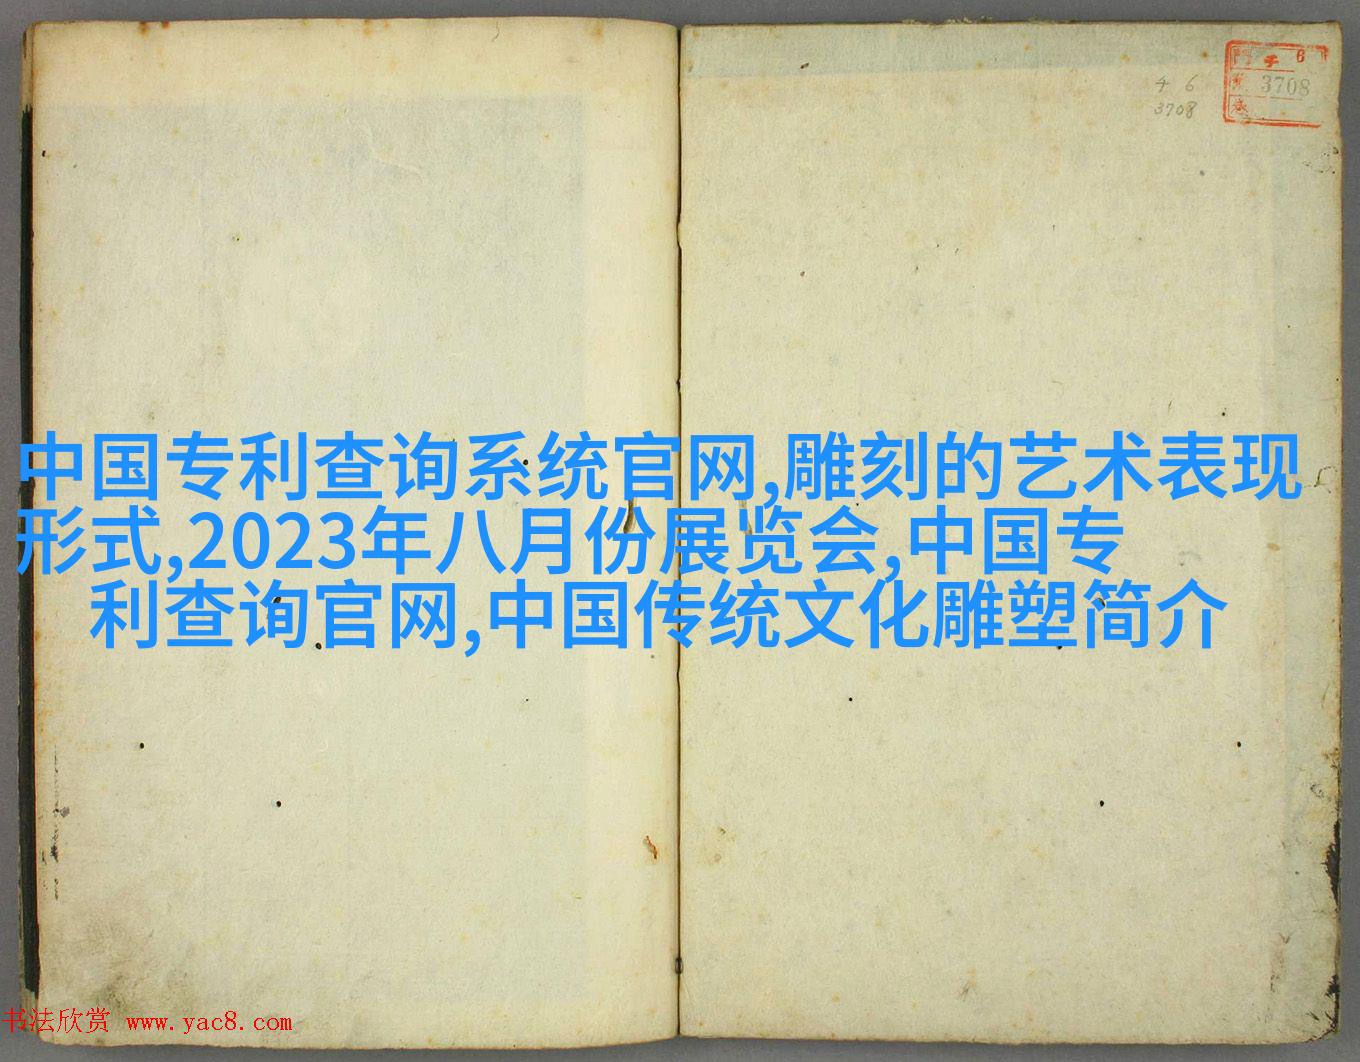 4 6
3708
6
3708
中国专利查询系统官网,雕刻的艺术表现
形式,2023年八月份展览会,中国专
利查询官网,中国传统文化雕塑简介
书法欣赏 www.yac8.com